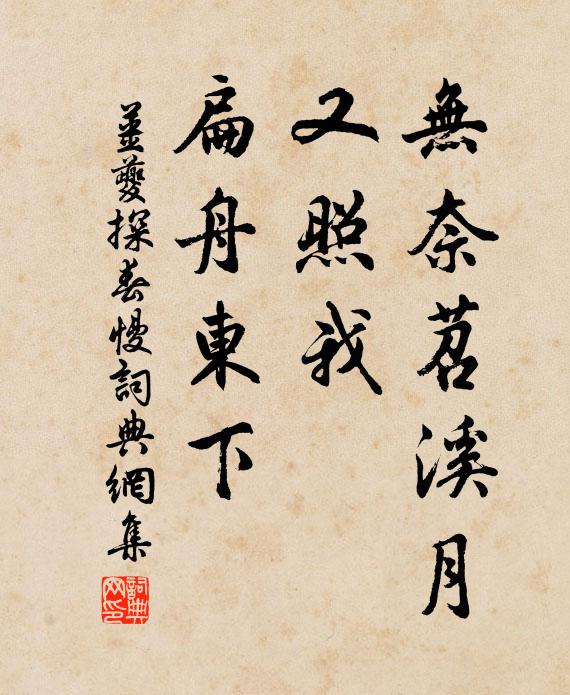 無奈苕溪月
又照我
扁舟東下
姜夔探春慢詞典網集
詞典网印